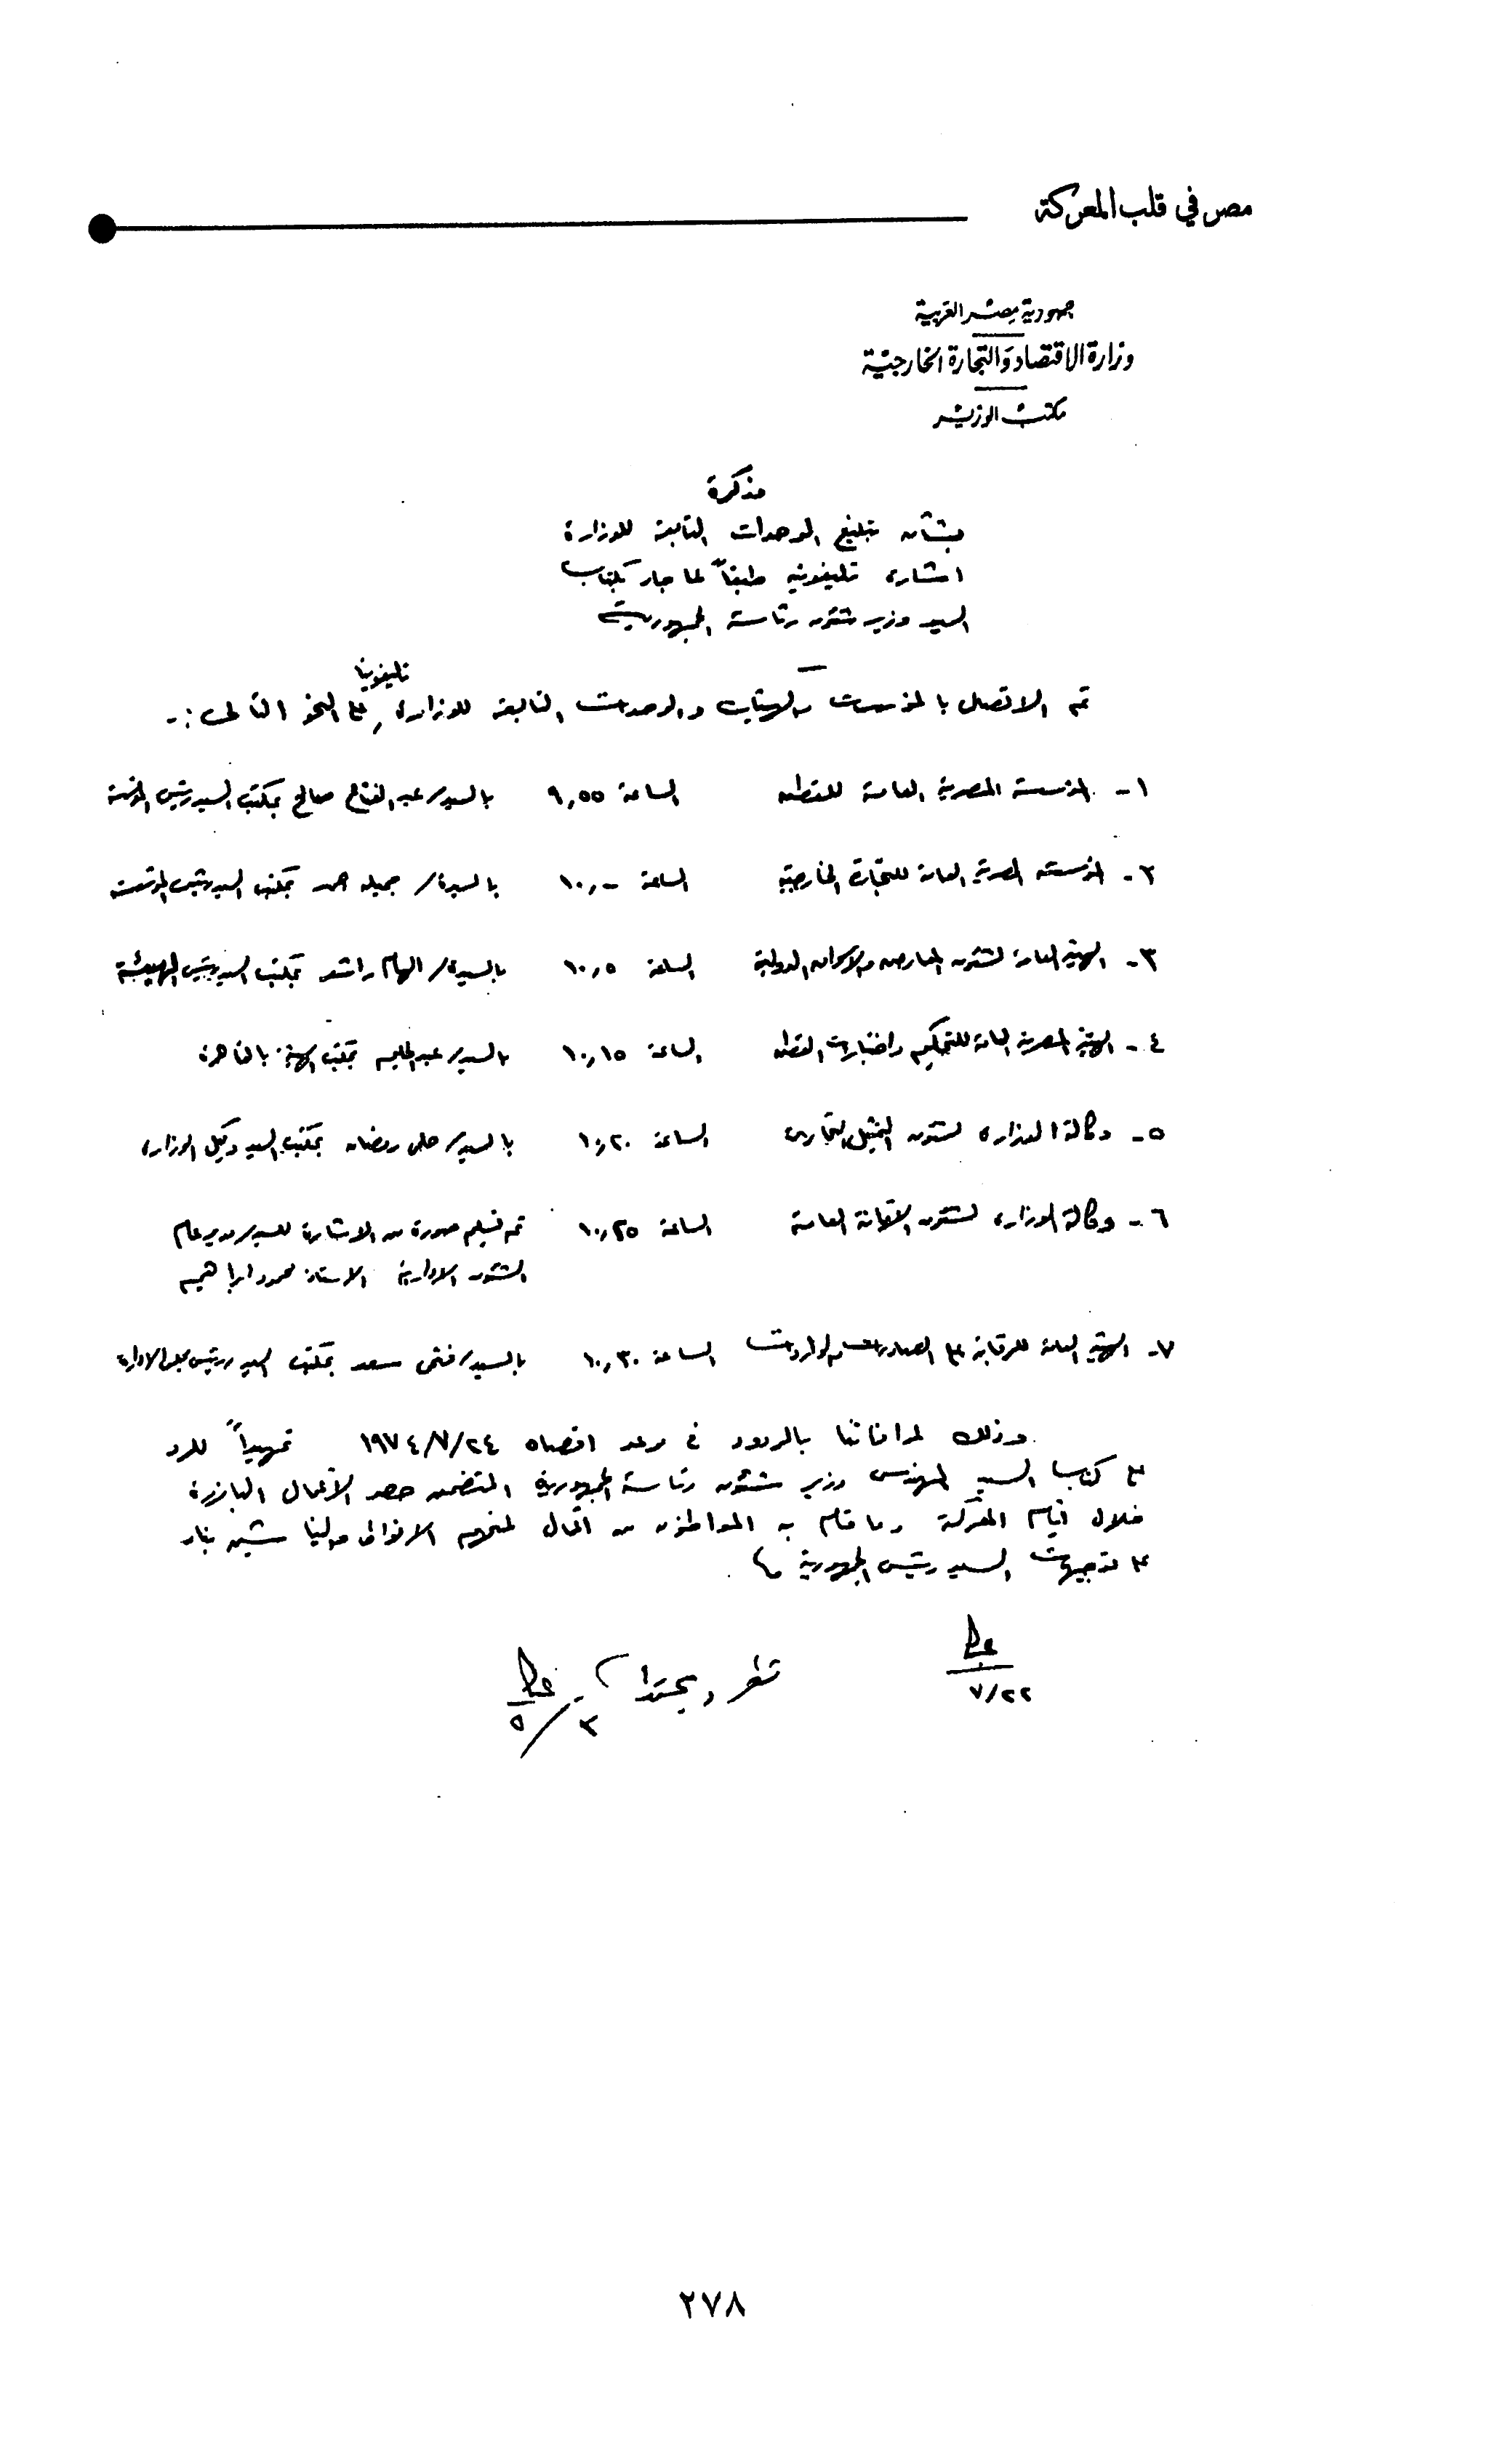 مصر في قلب المعركة
جمهورية مصر العربية
وزارة الاقتصاد والتجارة الخارجية
مكتب الوزير
مذكرة
بشأن تبليغ الوحدات التابعة للوزارة
اشارة تليفونية طبقاً لما جاء بكتاب
السيد وزير شئون رئاسة الجمهورية
تم الاتصال بالمؤسسات والهيئات والوحدات التابعة للوزارة تليفونيا على النحو التالى :-
١- المؤسسة المصرية العامة للقطن الساعة ٩,٥٥ بالسيد/ عبد الفتاح صالح بمكتب السيد رئيس المؤسسة
٢- المؤسسة المصرية العامة للتجارة الخارجية الساعة ١٠,٠٠ بالسيدة/ جميله حمد بمكتب السيد رئيس المؤسسة
٣- الهيئة العامة لشئون المعارض والاسواق الدولية الساعة ١٠,٥ بالسيدة/ الهام راشد بمكتب السيد رئيس الهيئة
٤- الهيئة المصرية العامة للتحكيم واختبارات القطن الساعة ١٠,١٥ بالسيد/ عبد الحليم بمكتب الهيئة بالقاهرة
٥- وكالة الوزارة لشئون التمثيل التجارى الساعة ١٠,٢٠ بالسيد/ حلمى رمضان بمكتب السيد وكيل الوزارة
٦- وكالة الوزارة لشئون الامانة العامة الساعة ١٠,٢٥ تم تسليم صورة من الاشارة للسيد مدير عام
الشئون الادارية الاستاذ محمود ابراهيم
٧- الهيئة العامة للرقابة على الصادرات والواردات الساعة ١٠,٣٠ بالسيد/ فتحى سعد بمكتب السيد رئيس مجلس الادارة
وذلك لموافاتنا بالردود فى موعد اقصاه ٢٤/٧/١٩٧٤ تمهيداً للرد
على كتاب السيد المهندس وزير شئون رئاسة الجمهورية المتضمن حصر الأعمال البارزة
خلال أيام المعركة وما قام به المواطنون من أعمال لمنحهم الانواط والنياشين بناء
على توجيهات السيد رئيس الجمهورية
٢٢/٧
نظر ويحفظ
٣/٥
٢٧٨